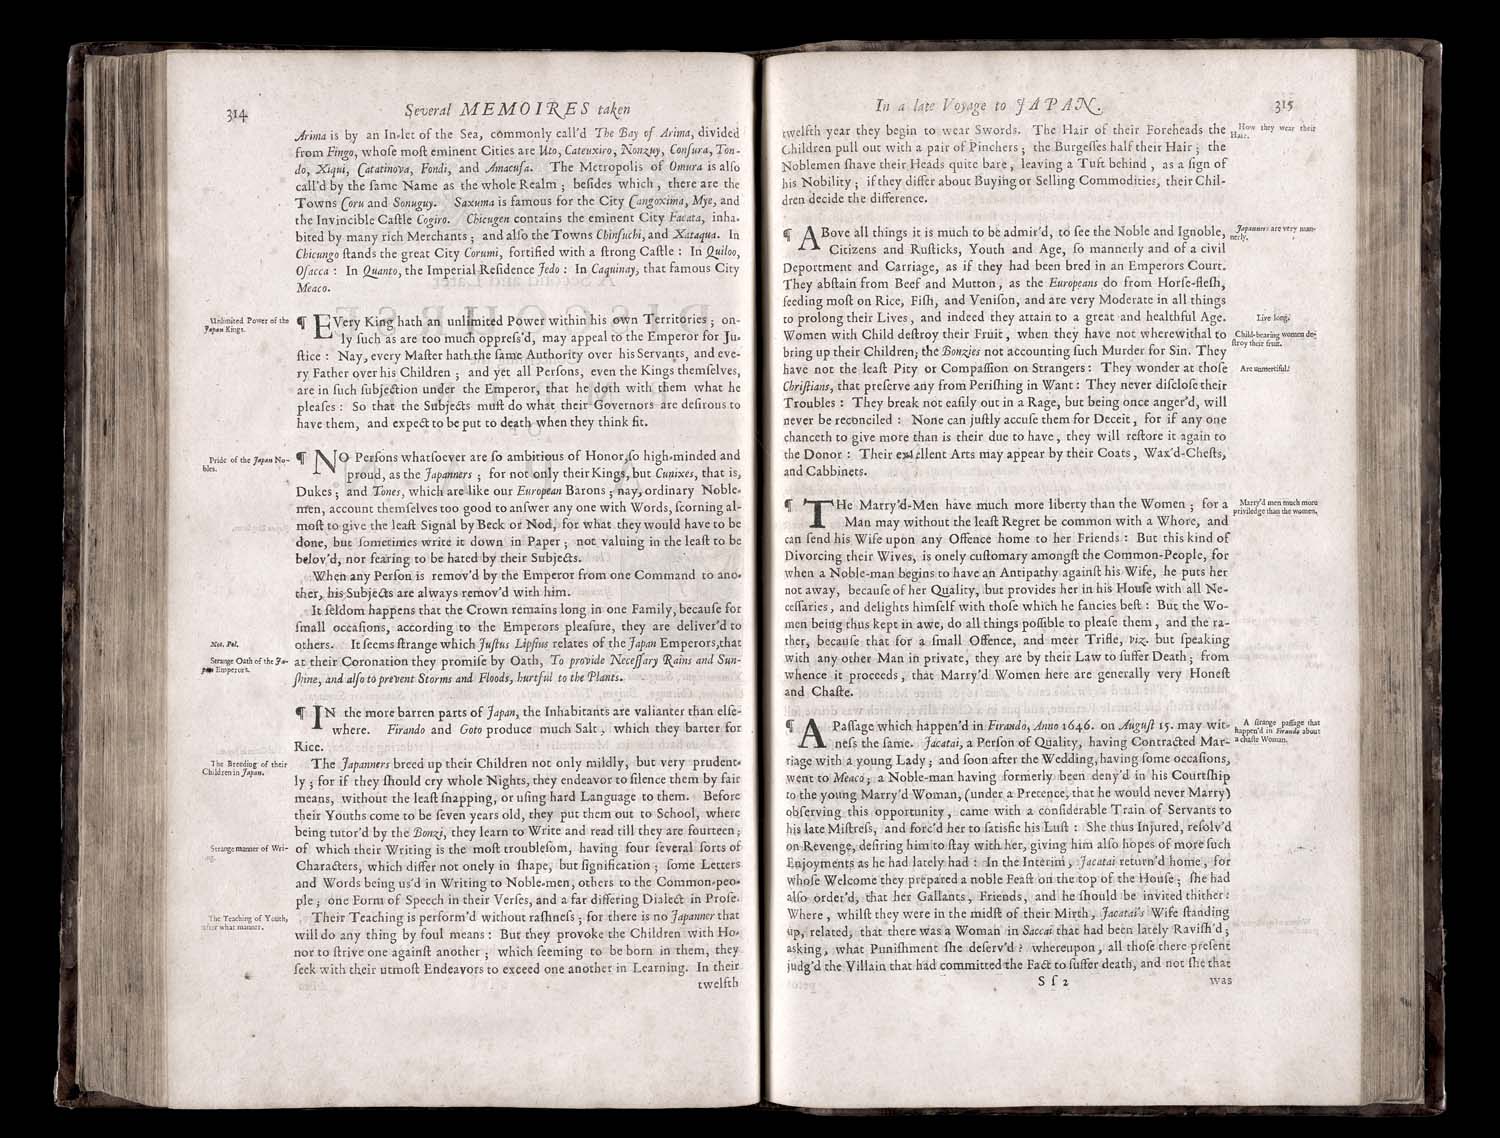 314
Several MEMOIRES taken
Arima is by an In-let of the Sea, commonly call'd The Bay of Arima, divided
from Fingo, whoſe moſt eminent Cities are Uto, Cateuxiro, Nonzuy, Conſura, Ton-
do, Xiqui, Catatinova, Fondi, and Amacuſa. The Metropolis of Omura is alſo
call'd by the ſame Name as the whole Realm; beſides which, there are the
Towns Coru and Sonuguy. Saxuma is famous for the City Cangoxima, Mye, and
the Invincible Caſtle Cogiro. Chicugen contains the eminent City Facata, inha-
bited by many rich Merchants; and alſo the Towns Chinſuchi, and Xataqua. In
Chicungo ſtands the great City Corumi, fortified with a ſtrong Caſtle: In Quiloo,
Oſacca: In Quanto, the Imperial Reſidence Jedo: In Caquinay, that famous City
Meaco.
Unlimited Power of the
Japan Kings.
¶ EVery King hath an unlimited Power within his own Territories; on-
ly ſuch as are too much oppreſs'd, may appeal to the Emperor for Ju-
ſtice: Nay, every Maſter hath the ſame Authority over his Servants, and eve-
ry Father over his Children; and yet all Perſons, even the Kings themſelves,
are in ſuch ſubjection under the Emperor, that he doth with them what he
pleaſes: So that the Subjects muſt do what their Governors are deſirous to
have them, and expect to be put to death when they think fit.
Pride of the Japan No-
bles.
¶ NO Perſons whatſoever are ſo ambitious of Honor, ſo high-minded and
proud, as the Japanners; for not only their Kings, but Cunixes, that is,
Dukes; and Tones, which are like our European Barons; nay, ordinary Noble-
men, account themſelves too good to anſwer any one with Words, ſcorning al-
moſt to give the leaſt Signal by Beck or Nod, for what they would have to be
done, but ſometimes write it down in Paper; not valuing in the leaſt to be
belov'd, nor fearing to be hated by their Subjects.
When any Perſon is remov'd by the Emperor from one Command to ano-
ther, his Subjects are always remov'd with him.
It ſeldom happens that the Crown remains long in one Family, becauſe for
ſmall occaſions, according to the Emperors pleaſure, they are deliver'd to
others. It ſeems ſtrange which Juſtus Lipſius relates of the Japan Emperors, that
at their Coronation they promiſe by Oath, To provide Neceſſary Rains and Sun-
ſhine, and alſo to prevent Storms and Floods, hurtful to the Plants.
Not. Pol.
Strange Oath of the Ja-
pan Emperors.
¶ IN the more barren parts of Japan, the Inhabitants are valianter than elſe-
where. Firando and Goto produce much Salt, which they barter for
Rice.
The Breeding of their
Children in Japan.
The Japanners breed up their Children not only mildly, but very prudent-
ly; for if they ſhould cry whole Nights, they endeavor to ſilence them by fair
means, without the leaſt ſnapping, or uſing hard Language to them. Before
their Youths come to be ſeven years old, they put them out to School, where
being tutor'd by the Bonzi, they learn to Write and read till they are fourteen;
of which their Writing is the moſt troubleſom, having four ſeveral ſorts of
Characters, which differ not onely in ſhape, but ſignification; ſome Letters
and Words being us'd in Writing to Noble-men, others to the Common-peo-
ple; one Form of Speech in their Verſes, and a far differing Dialect in Proſe.
Strange manner of Wri-
ing.
The Teaching of Youth,
after what manner.
Their Teaching is perform'd without raſhneſs; for there is no Japanner that
will do any thing by foul means: But they provoke the Children with Ho-
nor to ſtrive one againſt another; which ſeeming to be born in them, they
ſeek with their utmoſt Endeavors to exceed one another in Learning. In their
twelfth
In a late Voyage to JAPAN.
315
twelfth year they begin to wear Swords. The Hair of their Foreheads the
Children pull out with a pair of Pinchers; the Burgeſſes half their Hair; the
Noblemen ſhave their Heads quite bare, leaving a Tuft behind, as a ſign of
his Nobility; if they differ about Buying or Selling Commodities, their Chil-
dren decide the difference.
How they wear their
Hair.
¶ ABove all things it is much to be admir'd, to ſee the Noble and Ignoble,
Citizens and Ruſticks, Youth and Age, ſo mannerly and of a civil
Deportment and Carriage, as if they had been bred in an Emperors Court.
They abſtain from Beef and Mutton, as the Europeans do from Horſe-fleſh,
feeding moſt on Rice, Fiſh, and Veniſon, and are very Moderate in all things
to prolong their Lives, and indeed they attain to a great and healthful Age.
Women with Child deſtroy their Fruit, when they have not wherewithal to
bring up their Children, the Bonzies not accounting ſuch Murder for Sin. They
have not the leaſt Pity or Compaſſion on Strangers: They wonder at thoſe
Chriſtians, that preſerve any from Periſhing in Want: They never diſcloſe their
Troubles: They break not eaſily out in a Rage, but being once anger'd, will
never be reconciled: None can juſtly accuſe them for Deceit, for if any one
chanceth to give more than is their due to have, they will reſtore it again to
the Donor: Their excellent Arts may appear by their Coats, Wax'd-Cheſts,
and Cabbinets.
Japanners are very man-
nerly.
Live long.
Child-bearing women de-
ſtroy their fruit.
Are unmerciful.
¶ THe Marry'd-Men have much more liberty than the Women; for a
Man may without the leaſt Regret be common with a Whore, and
can ſend his Wife upon any Offence home to her Friends: But this kind of
Divorcing their Wives, is onely cuſtomary amongſt the Common-People, for
when a Noble-man begins to have an Antipathy againſt his Wife, he puts her
not away, becauſe of her Quality, but provides her in his Houſe with all Ne-
ceſſaries, and delights himſelf with thoſe which he fancies beſt: But the Wo-
men being thus kept in awe, do all things poſſible to pleaſe them, and the ra-
ther, becauſe that for a ſmall Offence, and meer Trifle, viz. but ſpeaking
with any other Man in private, they are by their Law to ſuffer Death; from
whence it proceeds, that Marry'd Women here are generally very Honeſt
and Chaſte.
Marry'd men much more
priviledge than the women.
¶ A Paſſage which happen'd in Firando, Anno 1646. on Auguſt 15. may wit-
neſs the ſame. Jacatai, a Perſon of Quality, having Contracted Mar-
riage with a young Lady; and ſoon after the Wedding, having ſome occaſions,
went to Meaco; a Noble-man having formerly been deny'd in his Courtſhip
to the young Marry'd Woman, (under a Pretence, that he would never Marry)
obſerving this opportunity, came with a conſiderable Train of Servants to
his late Miſtreſs, and forc'd her to ſatisfie his Luſt: She thus Injured, reſolv'd
on Revenge, deſiring him to ſtay with her, giving him alſo hopes of more ſuch
Enjoyments as he had lately had: In the Interim, Jacatai return'd home, for
whoſe Welcome they prepared a noble Feaſt on the top of the Houſe; ſhe had
alſo order'd, that her Gallants, Friends, and he ſhould be invited thither:
Where, whilſt they were in the midſt of their Mirth, Jacatai's Wife ſtanding
up, related, that there was a Woman in Saccai that had been lately Raviſh'd;
asking, what Puniſhment ſhe deſerv'd? whereupon, all thoſe there preſent
judg'd the Villain that had committed the Fact to ſuffer death, and not ſhe that
A ſtrange paſſage that
happen'd in Firando about
a chaſte Woman.
S ſ 2
was